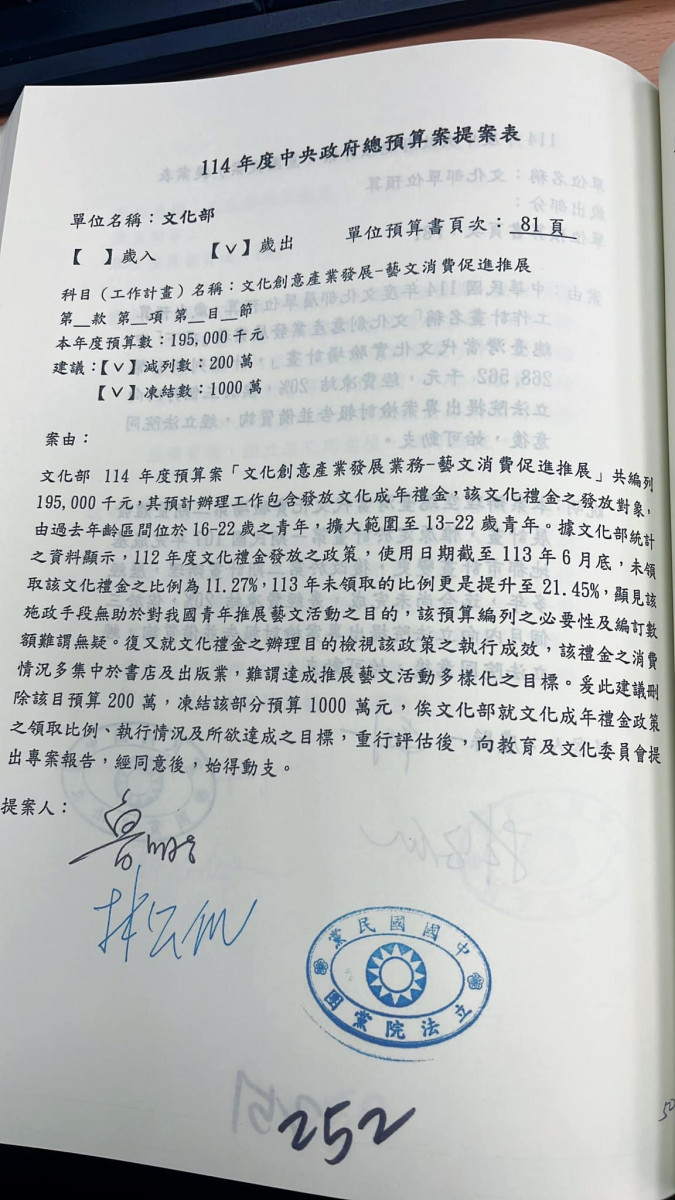 114 年度中央政府總預算案提案表
單位名稱：文化部
【　】歲入　【∨】歲出　單位預算書頁次： 81 頁
科目（工作計畫）名稱：文化創意產業發展-藝文消費促進推展
第__款 第__項 第__目__節
本年度預算數：195,000 千元
建議：【∨】減列數：200 萬
【∨】凍結數：1000 萬
案由：
文化部 114 年度預算案「文化創意產業發展業務-藝文消費促進推展」共編列
195,000 千元，其預計辦理工作包含發放文化成年禮金，該文化禮金之發放對象，
由過去年齡區間位於 16-22 歲之青年，擴大範圍至 13-22 歲青年。據文化部統計
之資料顯示，112 年度文化禮金發放之政策，使用日期截至 113 年 6 月底，未領
取該文化禮金之比例為 11.27%，113 年未領取的比例更是提升至 21.45%，顯見該
施政手段無助於對我國青年推展藝文活動之目的，該預算編列之必要性及編訂數
額難謂無疑。復又就文化禮金之辦理目的檢視該政策之執行成效，該禮金之消費
情況多集中於書店及出版業，難謂達成推展藝文活動多樣化之目標。爰此建議刪
除該目預算 200 萬，凍結該部分預算 1000 萬元，俟文化部就文化成年禮金政策
之領取比例、執行情況及所欲達成之目標，重行評估後，向教育及文化委員會提
出專案報告，經同意後，始得動支。
提案人：
中國國民黨
立法院黨團
252